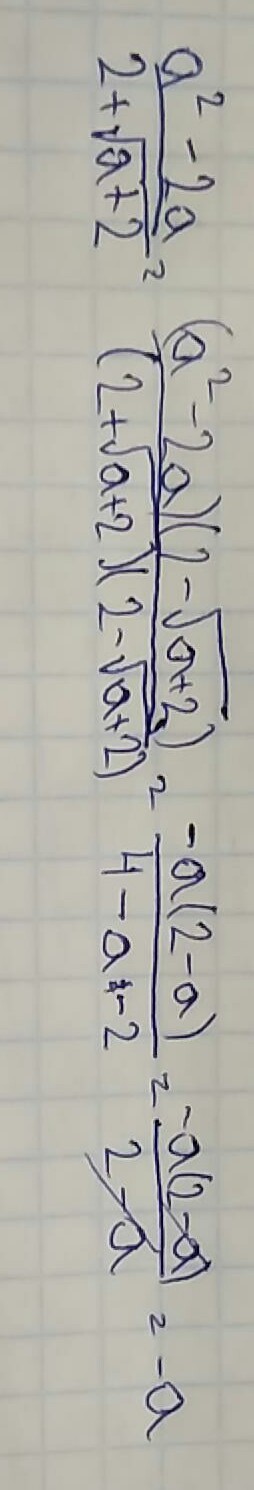 \frac{a^2 - 2a}{2 + \sqrt{a+2}} = \frac{(a^2 - 2a)(2 - \sqrt{a+2})}{(2 + \sqrt{a+2})(2 - \sqrt{a+2})} = \frac{-a(2-a)}{4 - a - 2} = \frac{-a(2-a)}{2-a} = -a